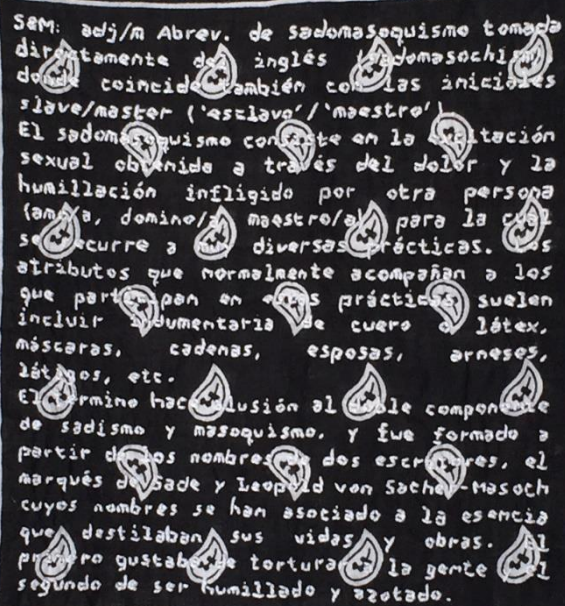 S&M: adj/m Abrev. de sadomasoquismo tomada
directamente del inglés sadomasochism
donde coincide también con las iniciales
slave/master ('esclavo'/'maestro')
El sadomasoquismo consiste en la excitación
sexual obtenida a través del dolor y la
humillación infligido por otra persona
(amo/a, domino/a, maestro/a), para la cual
se recurre a muy diversas prácticas. Los
atributos que normalmente acompañan a los
que participan en estas prácticas suelen
incluir indumentaria de cuero o látex,
máscaras, cadenas, esposas, arneses,
látigos, etc.
El término hace alusión al doble componente
de sadismo y masoquismo, y fue formado a
partir de los nombres de dos escritores, el
marqués de Sade y Leopold von Sacher-Masoch
cuyos nombres se han asociado a la esencia
que destilaban sus vidas y obras. Al
primero gustaba de torturar a la gente el
segundo de ser humillado y azotado.